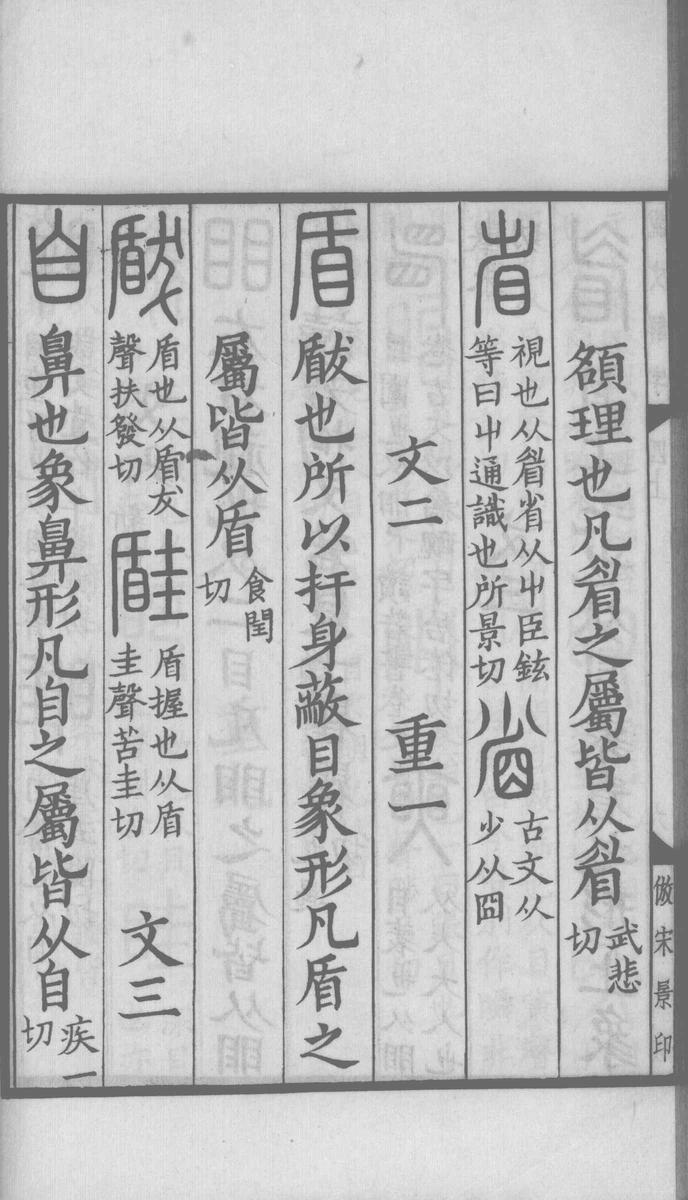 額理也凡眉之屬皆从眉武悲切
省視也从眉省从屮臣鉉等曰屮通識也所景切𡮀古文从少从囧
文二 重一
盾瞂也所以扞身蔽目象形凡盾之
屬皆从盾食閏切
瞂盾也从盾犮聲扶發切𥍋盾握也从盾圭聲苦圭切 文三
自鼻也象鼻形凡自之屬皆从自疾二切
倣宋景印